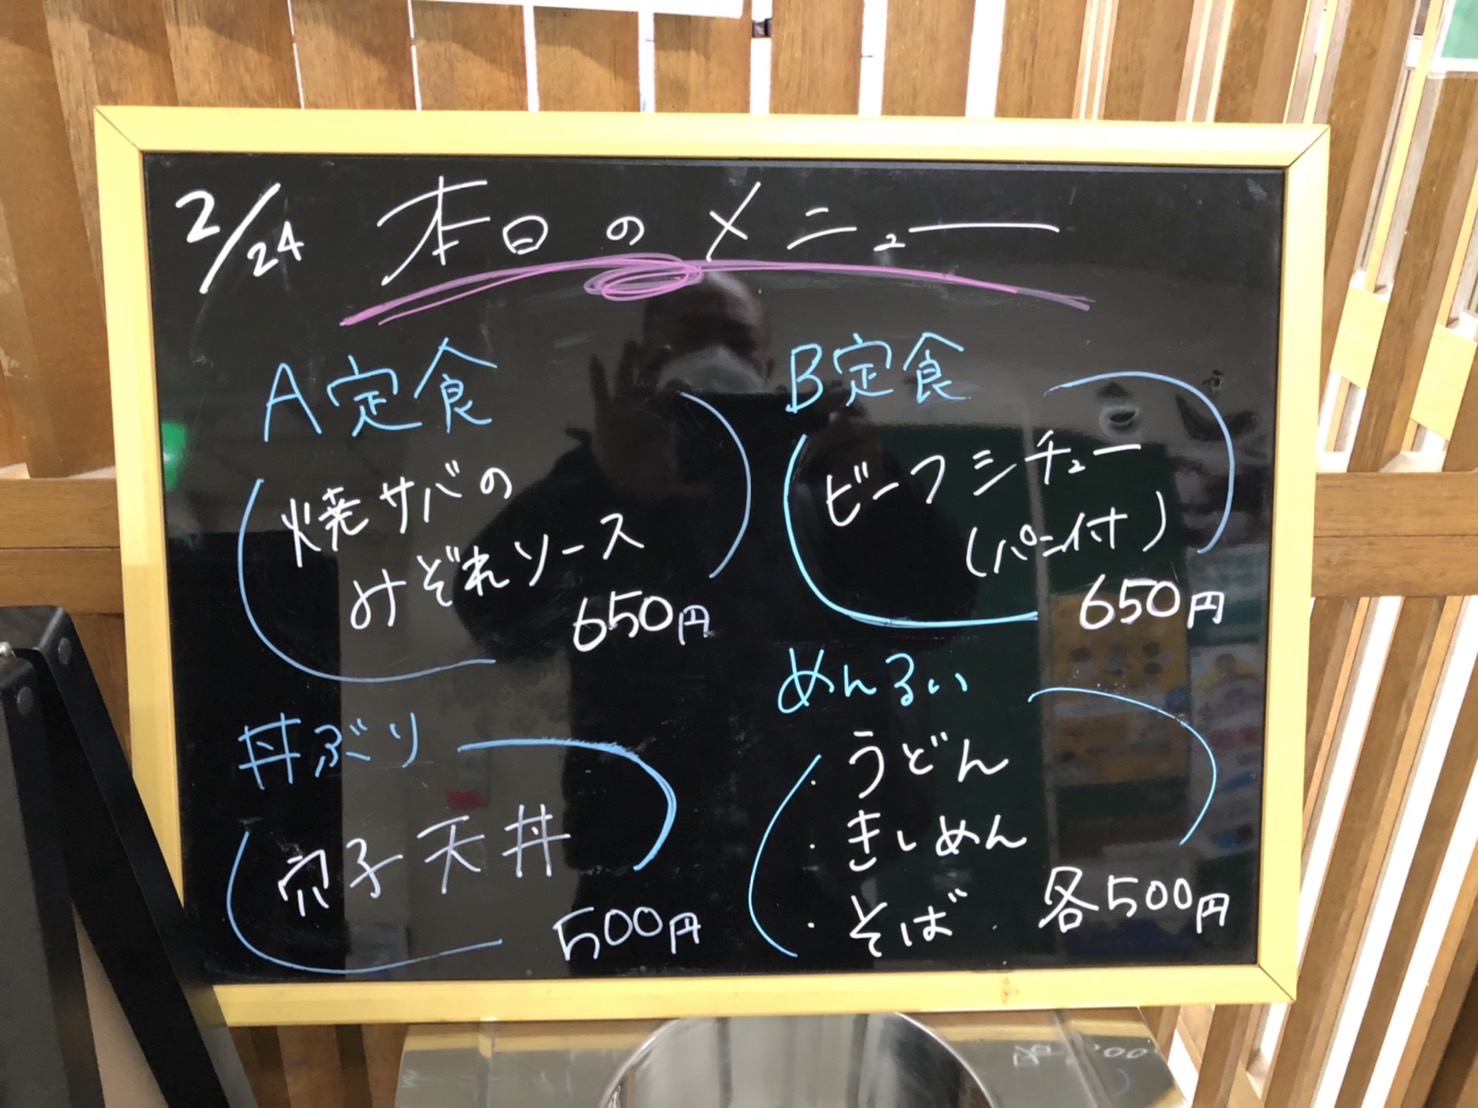 2/24 本日のメニュー
A定食
焼サバの
みぞれソース
650円
B定食
ビーフシチュー
(パン付)
650円
丼ぶり
穴子天丼
500円
めんるい
・うどん
・きしめん
・そば 各500円